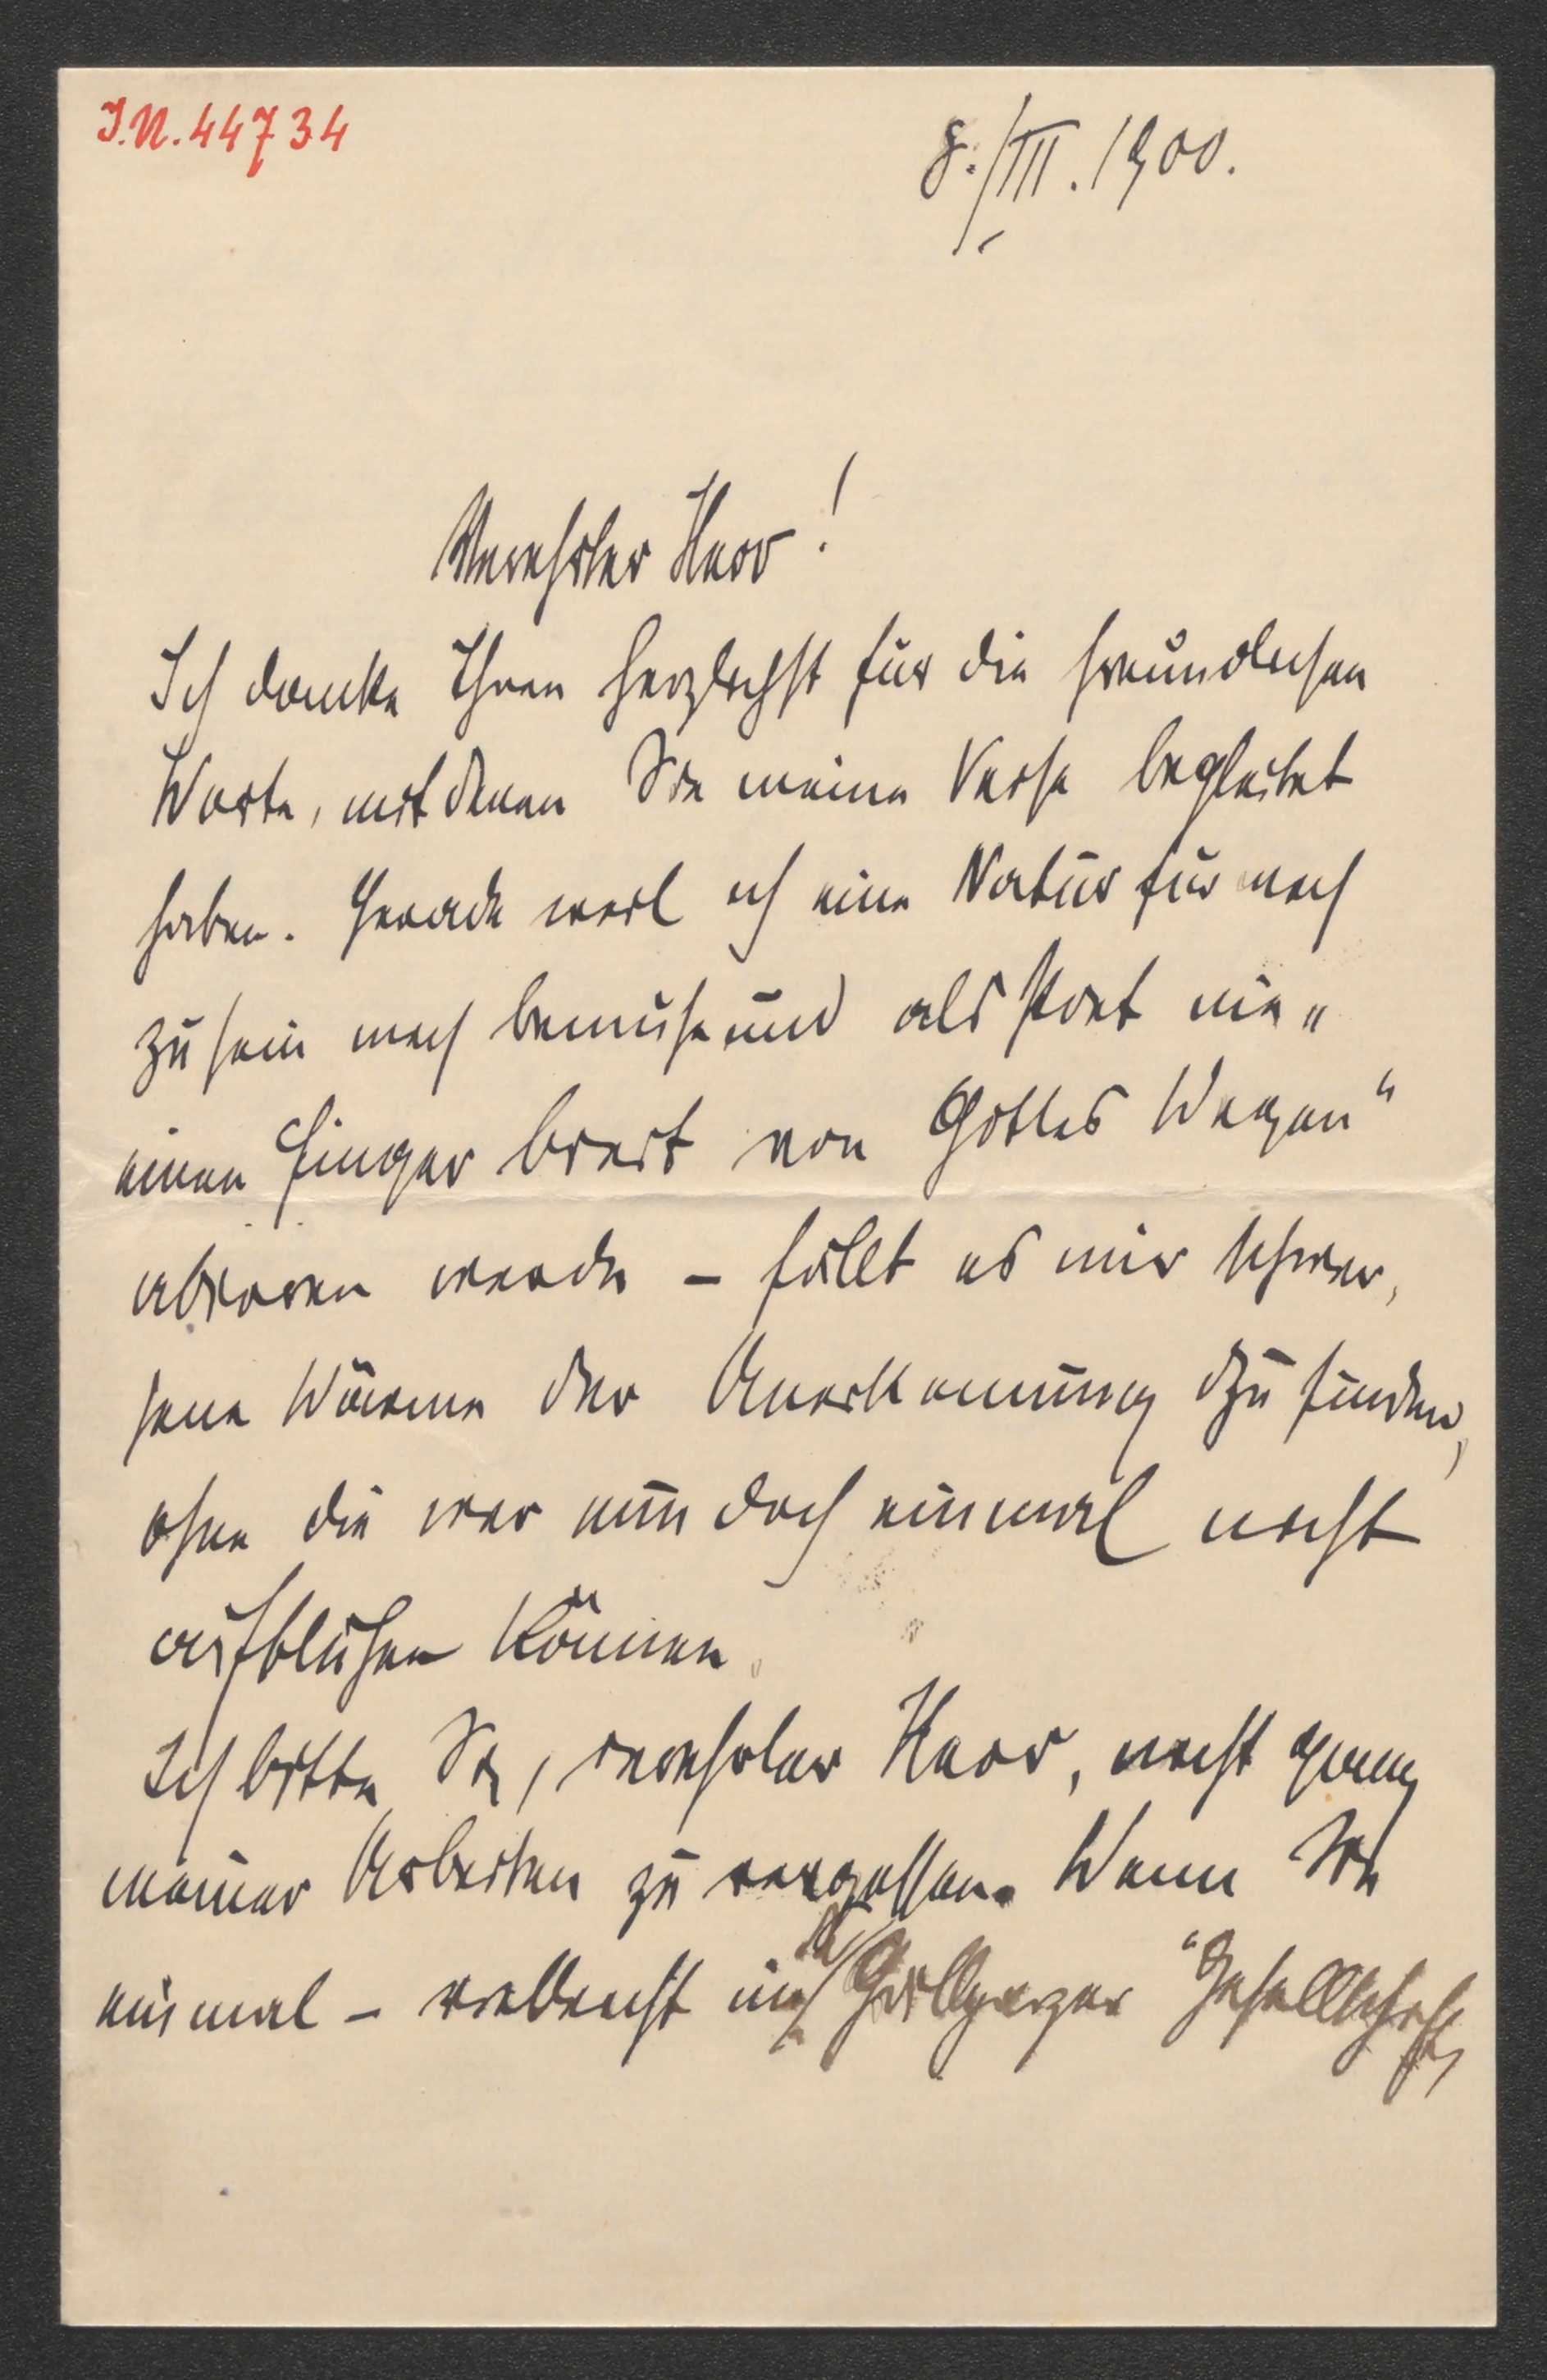 I.N. 44734
8./III. 1900.
Verehrter Herr!
Ich danke Ihnen herzlichst für die freundlichen
Worte, mit denen Sie meine Verse begleitet
haben. Gerade weil ich eine Natur für mich
zu sein mich bemühe und als Poet nie „
einen Finger breit von Gottes Wegen“
abirren werde – fällt es mir schwer,
jene Wärme der Anerkennung zu finden,
ohne die wir nun doch einmal nicht
aufblühen können.
Ich bitte Sie, verehrter Herr, nicht ganz
meiner Arbeiten zu vergessen. Wenn Sie
einmal – vielleicht in Grillparzer "Gesellschaft